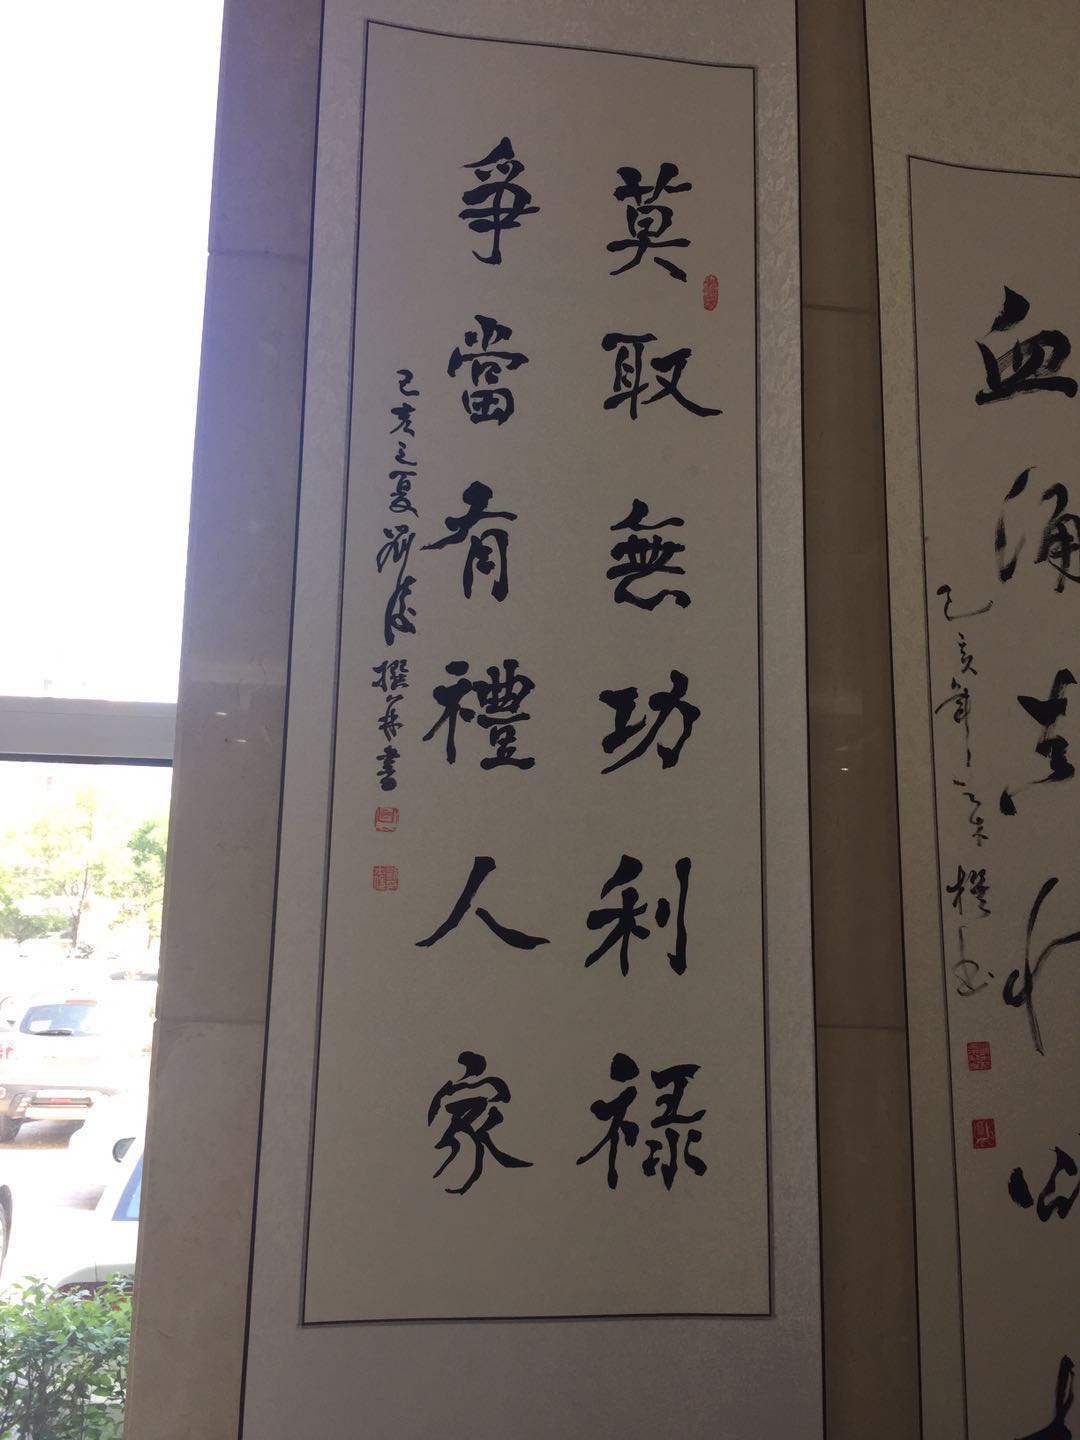 莫取無功利祿
爭當有禮人家
己亥之夏劉
撰并書
血涌
己亥年
撰書